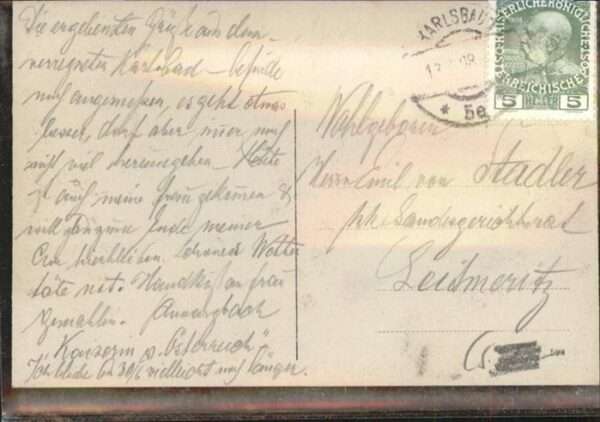 Die ergebensten Grüße aus dem
verregneten Karlsbad – befinde
mich angemessen, es geht etwas
besser, darf aber immer noch
nicht viel herumgehen – Heute
ist auch meine Frau gekommen &
will bis zum Ende meiner
Cur hierbleiben. Schönes Wetter
täte not. Handkuß an Frau
Gemahlin.
Kaiserin v. Österreich"
Ich bleibe bis 30/6 vielleicht noch länger.
KARLSBAD
08
* 5e
KAISERLICHE KÖNIGLICHE
ÖSTERREICHISCHE POST
5 HELLER 5
Wohlgeboren
Herrn Emil von Stadler
k.k. Landesgerichtsrat
Leitmeritz